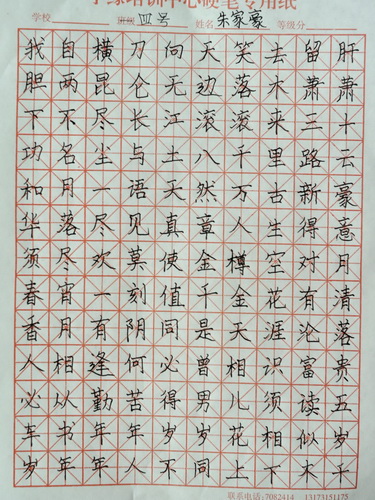 培训中心硬笔专用纸
学校 班级 四号 姓名 朱家豪 等级分
我自横刀向天笑去留肝
胆两昆仑无边落木萧萧
下不尽长江滚滚来三十
功名尘与土八千里路云
和月一语天然万古新豪
华落尽见真章人生得意
须尽欢莫使金樽空对月
春宵一刻值千金花有清
香月有阴同是天涯沦落
人相逢何必曾相识富贵
必从勤苦得男儿须读五
车书年年岁岁花相似岁
岁年年人不同上下不千
联系电话:7082414 13173151175